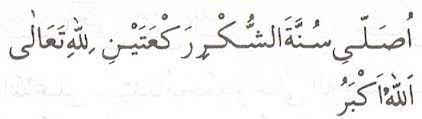 اُصَلِّيْ سُنَّةَ الشُّكْرِ رَكْعَتَيْنِ لِلّٰهِ تَعَالٰى
اَللّٰهُ اَكْبَرُ